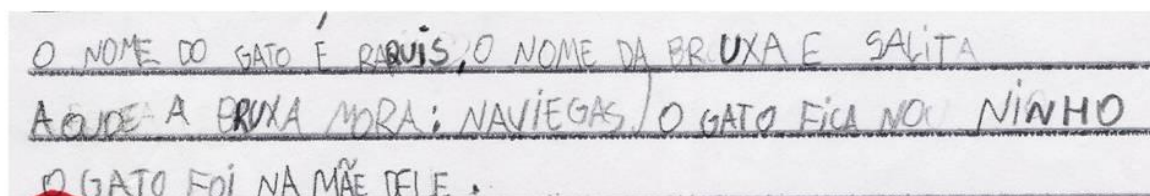 O NOME DO GATO É RAQUIS, O NOME DA BRUXA E SALITA
AOUDE A BRUXA MORA: NAVIEGAS / O GATO FICA NO NINHO
O GATO FOI NA MÃE DELE.